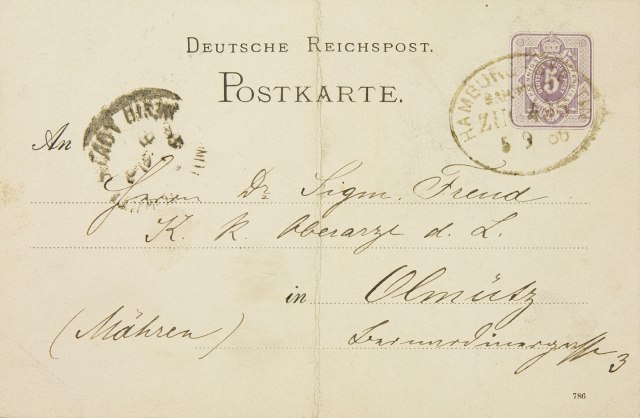 DEUTSCHE REICHSPOST.
POSTKARTE.
HAMBURG
ZUG
5 9 86
5
An
Herrn Dr Sigm. Freud
K. k. Oberarzt d. L.
in Olmütz
(Mähren) Bernardinergasse 3
786